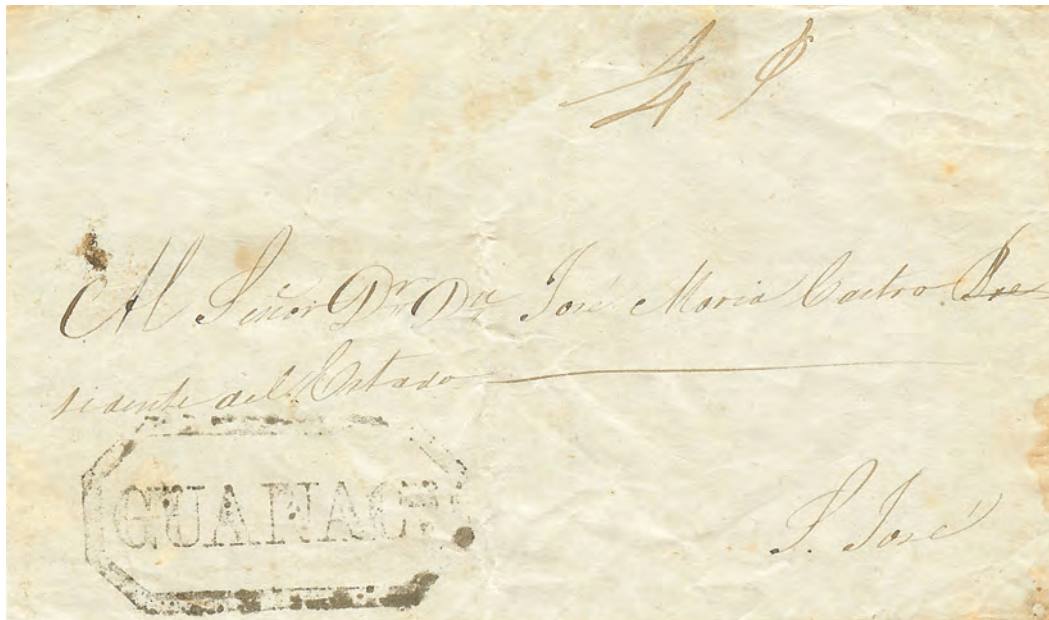 4
Al Señor Dr Dn José Maria Castro Pre-
sidente del Estado
GUANAC
S. José